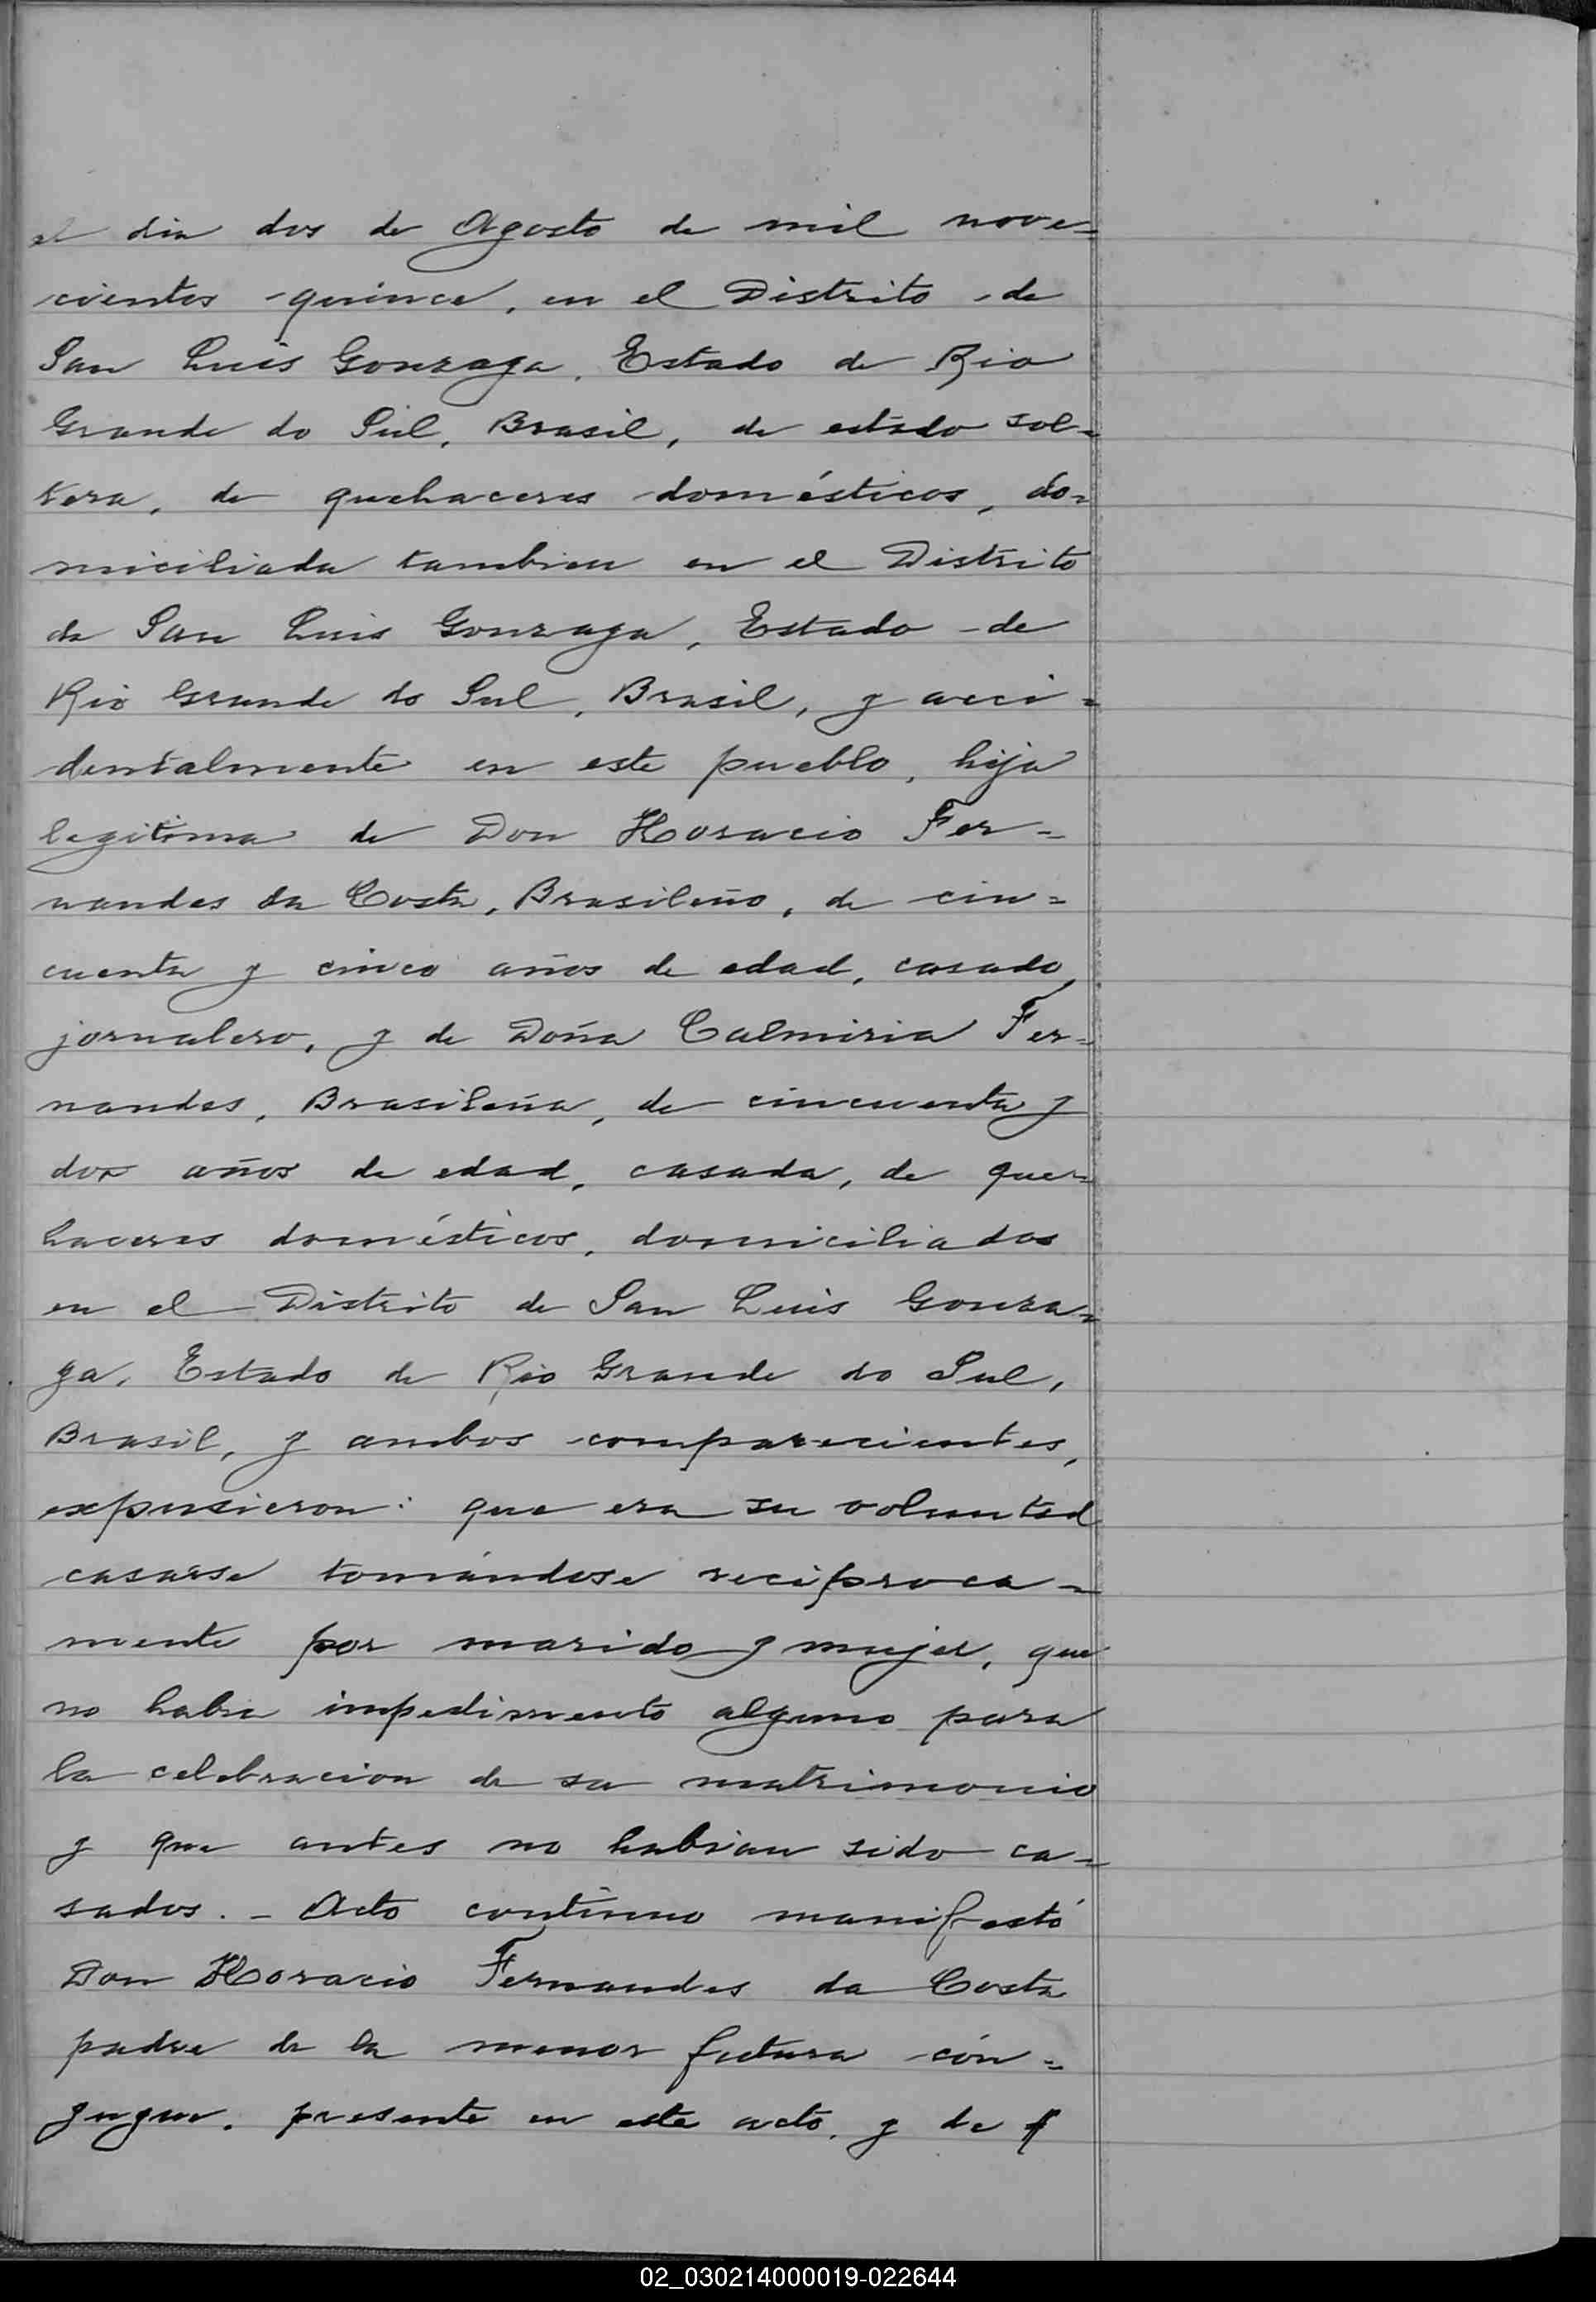 el dia dos de Agosto de mil nove=
cientos quince, en el Distrito de
San Luis Gonzaga, Estado de Rio
Grande do Sul, Brasil, de estado sol=
tera, de quehaceres domésticos, do=
miciliada tambien en el Distrito
de San Luis Gonzaga, Estado de
Rio Grande do Sul, Brasil, y acci=
dentalmente en este pueblo, hija
legitima de Don Horacio Fer=
nandes da Costa, Brasileño, de cin=
cuenta y cinco años de edad, casado,
jornalero, y de Doña Calmiria Fer=
nandes, Brasileña, de cincuenta y
dos años de edad, casada, de que=
haceres domésticos, domiciliados
en el Distrito de San Luis Gonza=
ga, Estado de Rio Grande do Sul,
Brasil, y ambos comparecientes,
expusieron: que era su voluntad
casarse tomándose reciproca=
mente por marido y mujer, que
no habia impedimento alguno para
la celebracion de su matrimonio
y que antes no habian sido ca=
sados. - Acto continuo manifestó
Don Horacio Fernandes da Costa
padre de la menor futura cón=
yugue, presente en este acto, y de
02_030214000019-022644